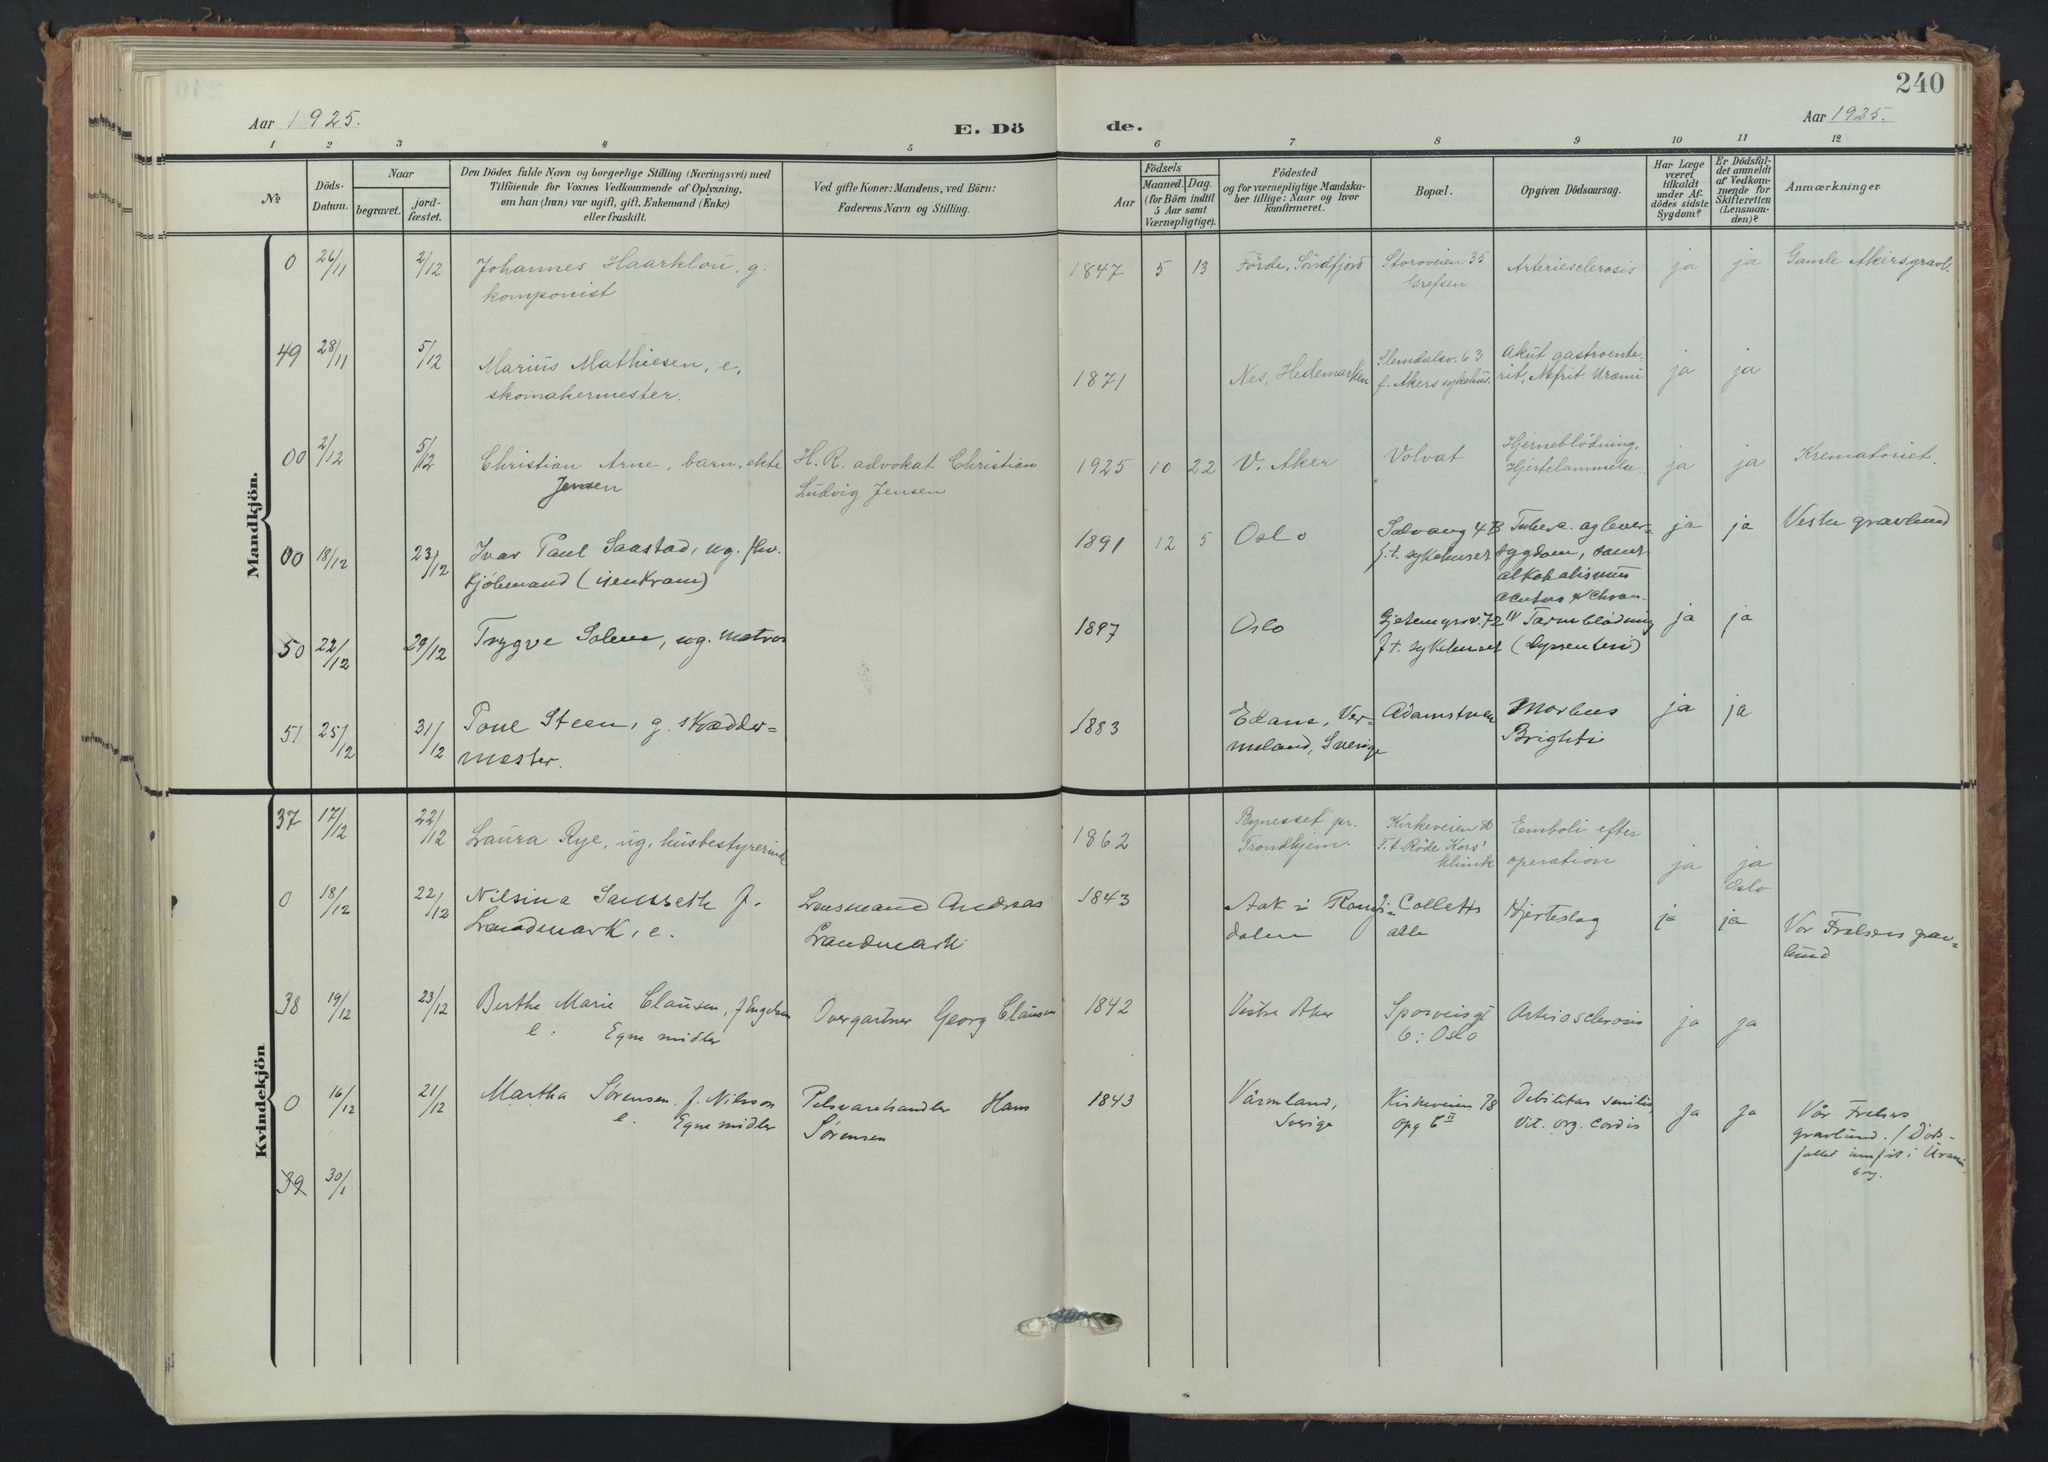 240
Aar 1925.
E. Dö
de.
Aar 1925.
1 2 3 4 5 6 7 8 9 10 11 12
№
Döds-
Datum.
Naar
begravet.
jord-
fæstet.
Den Dödes fulde Navn og borgerlige Stilling (Næringsvei) med
Tilföiende for Voxnes Vedkommende af Oplysning,
om han (hun) var ugift, gift, Enkemand (Enke)
eller fraskilt.
Ved gifte Koner: Mandens, ved Börn:
Faderens Navn og Stilling.
Aar
Födsels
Maaned. Dag.
(for Börn indtil
5 Aar samt
Værnepligtige).
Födested
og for værnepligtige Mandska-
ber tillige: Naar og hvor
konfirmeret.
Bopæl.
Opgiven Dödsaarsag.
Har Læge
været
tilkaldt
under Af-
dödes sidste
Sygdom?
Er Dödsfal-
det anmeldt
af Vedkom-
mende for
Skifteretten
(Lensman-
den)?
Anmærkninger
Mandkjön.
0 26/11 2/12 Johannes Haarklou, g. 1847 5 13 Förde, Söndfjord Storoveien 35 Arteriesclerosis ja ja Gamle Akers gravl.
komponist Grefsen
49 28/11 5/12 Marius Mathiesen, e, 1871 Nes, Hedemarken Slemdalsv. 63 Akut gastroente-
skomakermester. f. Akers sykehus. rit, Nefrit. Uræmi ja ja
00 2/12 5/12 Christian Arne, barn, ekte H. R. advokat Christian 1925 10 22 V. Aker Volvat Hjerneblödning, ja ja Krematoriet.
Jensen Ludvig Jensen Hjertelammelse.
00 18/12 23/12 Ivar Paul Saastad, ug. fhv. 1891 12 5 Oslo Solvang 4B Tuberc. og lever- ja ja Vestre gravlund
kjöbmand (isenkram) f.t. sykehuset sygdom, samt
alkoholismus
acutus & chron-
50 22/12 29/12 Trygve Solem, ug. matros 1897 Oslo Gjetemyrsv. 72 IV Tarmblödning ja ja
f.t. sykehuset (Dysenteri)
51 25/12 31/12 Poul Steen, g. skrædder- 1883 Edane, Ver- Adamstuen Morbus ja ja
mester. meland, Sverige Brighti
Kvindekjön
37 17/12 22/12 Laura Rye, ug. husbestyrerinde 1862 Bynesset pr. Kirkeveien Emboli efter
Trondhjem. F.t. Röde Kors' klinik operation ja ja
Oslo
0 18/12 22/12 Nilsina Elisabeth f. Lensmand Andreas 1843 Aak i Roms- Colletts Hjerteslag ja ja Vor Frelsers grav-
Landmark, e. Landmark dalen alle lund
38 19/12 23/12 Berthe Marie Clausen, f Overgartner Georg Clausen 1842 Vestre Aker Sporveisgt Arteriosclerosis ja ja
e: Egne midler 6: Oslo
0 16/12 21/12 Martha Sørensen, f. Nilsson Pelsvarehandler Hans 1843 Värmland, Kirkeveien 78 Debilitas senilis, ja ja Vår Frelsers
e. Egne midler Sørensen Sverige opg 6 II Vit. org. cordis gravlund. / Døds-
fallet innført i Uranien-
borg.
39 30/1